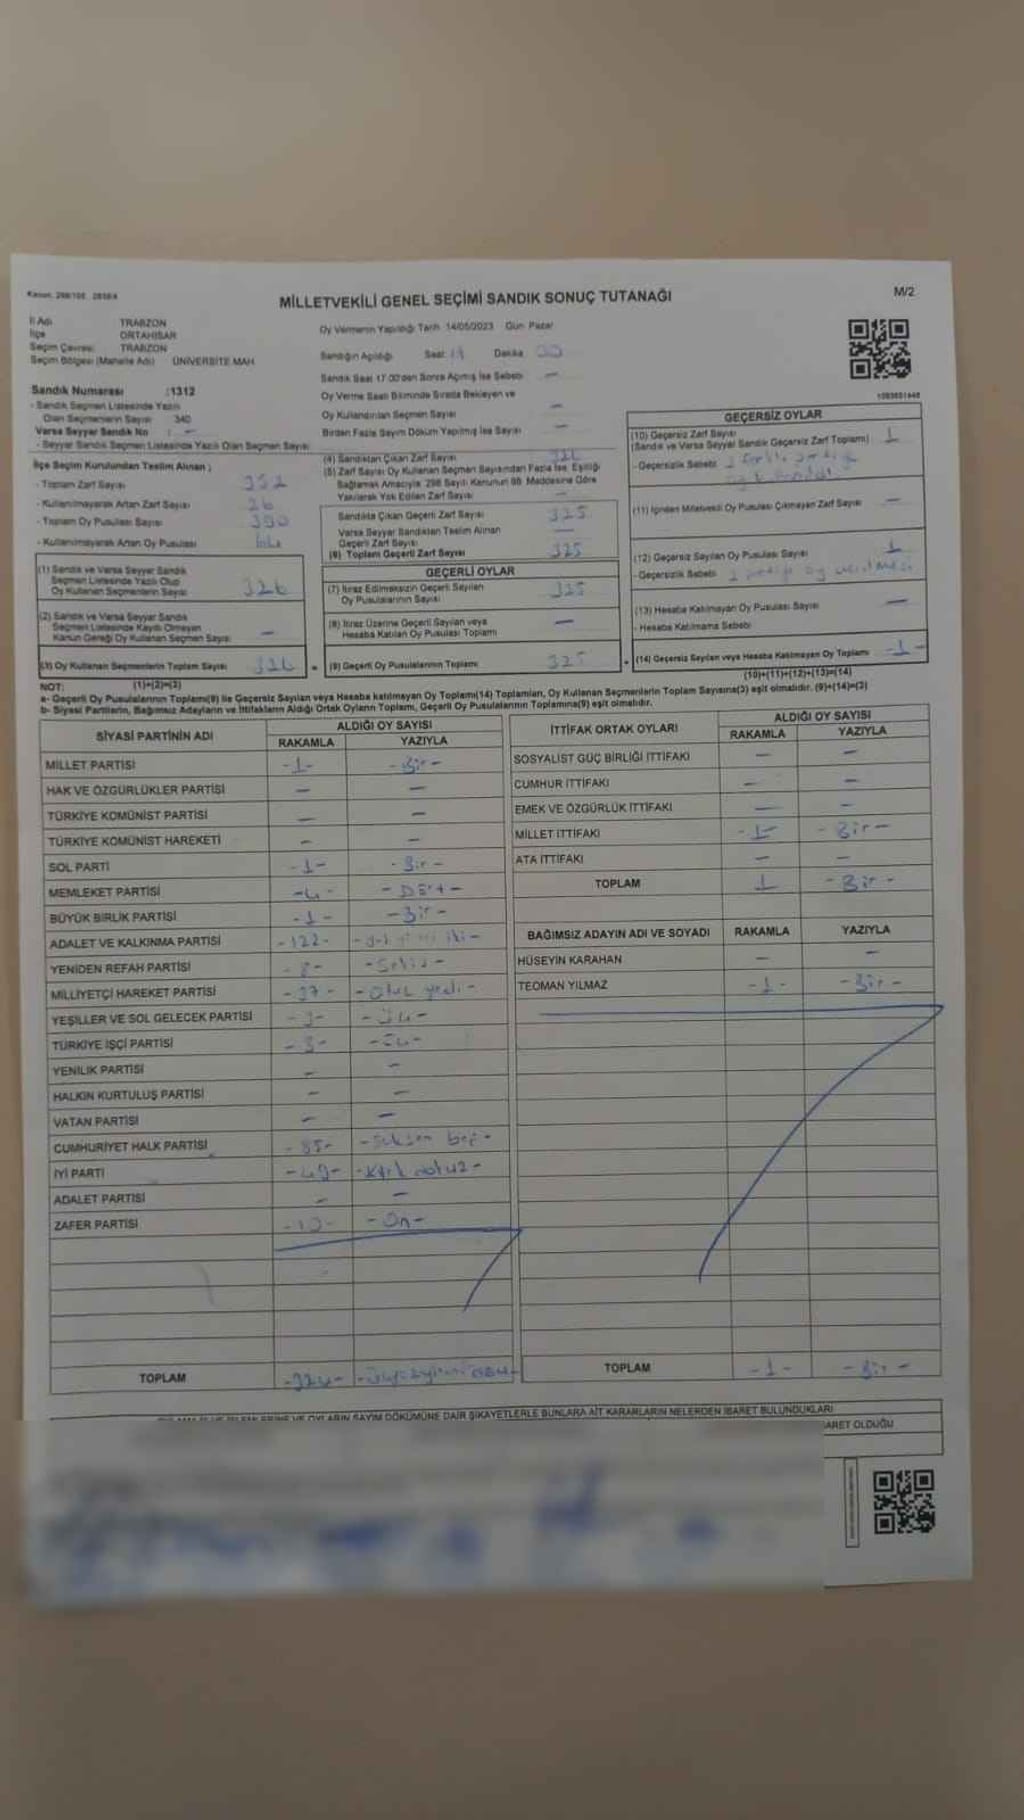 MİLLETVEKİLİ GENEL SEÇİMİ SANDIK SONUÇ TUTANAĞI
M/2
İl Adı TRABZON
İlçe ORTAHİSAR
Seçim Çevresi TRABZON
Seçim Bölgesi (Mahalle Adı) ÜNİVERSİTE MAH
Oy Vermenin Yapıldığı Tarih 14/05/2023 Gün Pazar
Sandığın Açıldığı Saat Dakika
Sandık Saat 17:00'den Sonra Açılmış İse Sebebi —
Oy Verme Saati Bitiminde Sırada Bekleyen ve
Oy Kullandırılan Seçmen Sayısı —
Birden Fazla Sayım Döküm Yapılmış İse Sayısı —
Sandık Numarası :1312
- Sandık Seçmen Listesinde Yazılı
Olan Seçmenlerin Sayısı 340
Varsa Seyyar Sandık No : —
- Seyyar Sandık Seçmen Listesinde Yazılı Olan Seçmen Sayısı
İlçe Seçim Kurulundan Teslim Alınan ;
- Toplam Zarf Sayısı 352
- Kullanılmayarak Artan Zarf Sayısı 26
- Toplam Oy Pusulası Sayısı 390
- Kullanılmayarak Artan Oy Pusulası 64
(1) Sandık ve Varsa Seyyar Sandık
Seçmen Listesinde Yazılı Olup
Oy Kullanan Seçmenlerin Sayısı 326
(2) Sandık ve Varsa Seyyar Sandık
Seçmen Listesinde Kayıtlı Olmayan
Kanun Gereği Oy Kullanan Seçmen Sayısı —
(3) Oy Kullanan Seçmenlerin Toplam Sayısı 326
(1)+(2)=(3)
(4) Sandıktan Çıkan Zarf Sayısı 326
(5) Zarf Sayısı Oy Kullanan Seçmen Sayısından Fazla İse, Eşitliği
Sağlamak Amacıyla 298 Sayılı Kanunun 98. Maddesine Göre
Yakılarak Yok Edilen Zarf Sayısı —
Sandıkta Çıkan Geçerli Zarf Sayısı 325
Varsa Seyyar Sandıktan Teslim Alınan
Geçerli Zarf Sayısı —
(6) Toplam Geçerli Zarf Sayısı 325
GEÇERLİ OYLAR
(7) İtiraz Edilmeksizin Geçerli Sayılan
Oy Pusulalarının Sayısı 325
(8) İtiraz Üzerine Geçerli Sayılan veya
Hesaba Katılan Oy Pusulası Toplamı —
(9) Geçerli Oy Pusulalarının Toplamı 325
GEÇERSİZ OYLAR
(10) Geçersiz Zarf Sayısı 1
(Sandık ve Varsa Seyyar Sandık Geçersiz Zarf Toplamı)
- Geçersizlik Sebebi
(11) İçinden Milletvekili Oy Pusulası Çıkmayan Zarf Sayısı —
(12) Geçersiz Sayılan Oy Pusulası Sayısı 1
- Geçersizlik Sebebi
(13) Hesaba Katılmayan Oy Pusulası Sayısı —
- Hesaba Katılmama Sebebi
(14) Geçersiz Sayılan veya Hesaba Katılmayan Oy Toplamı -1-
(10)+(11)+(12)+(13)=(14)
NOT:
a- Geçerli Oy Pusulalarının Toplamı(9) ile Geçersiz Sayılan veya Hesaba katılmayan Oy Toplamı(14) Toplamları, Oy Kullanan Seçmenlerin Toplam Sayısına(3) eşit olmalıdır. (9)+(14)=(3)
b- Siyasi Partilerin, Bağımsız Adayların ve İttifakların Aldığı Ortak Oyların Toplamı, Geçerli Oy Pusulalarının Toplamına(9) eşit olmalıdır.
SİYASİ PARTİNİN ADI ALDIĞI OY SAYISI
RAKAMLA YAZIYLA
MİLLET PARTİSİ -1- -Bir-
HAK VE ÖZGÜRLÜKLER PARTİSİ — —
TÜRKİYE KOMÜNİST PARTİSİ — —
TÜRKİYE KOMÜNİST HAREKETİ — —
SOL PARTİ -1- -Bir-
MEMLEKET PARTİSİ -4- -Dört-
BÜYÜK BİRLİK PARTİSİ -1- -Bir-
ADALET VE KALKINMA PARTİSİ -122-
YENİDEN REFAH PARTİSİ -8- -Sekiz-
MİLLİYETÇİ HAREKET PARTİSİ -37- -Otuz yedi-
YEŞİLLER VE SOL GELECEK PARTİSİ -3- -Üç-
TÜRKİYE İŞÇİ PARTİSİ -3- -Üç-
YENİLİK PARTİSİ — —
HALKIN KURTULUŞ PARTİSİ — —
VATAN PARTİSİ — —
CUMHURİYET HALK PARTİSİ -85- -Seksen beş-
İYİ PARTİ -49- -Kırk dokuz-
ADALET PARTİSİ — —
ZAFER PARTİSİ -10- -On-
TOPLAM -324-
İTTİFAK ORTAK OYLARI ALDIĞI OY SAYISI
RAKAMLA YAZIYLA
SOSYALİST GÜÇ BİRLİĞİ İTTİFAKI — —
CUMHUR İTTİFAKI — —
EMEK VE ÖZGÜRLÜK İTTİFAKI — —
MİLLET İTTİFAKI -1- -Bir-
ATA İTTİFAKI — —
TOPLAM 1 -Bir-
BAĞIMSIZ ADAYIN ADI VE SOYADI RAKAMLA YAZIYLA
HÜSEYİN KARAHAN — —
TEOMAN YILMAZ -1- -Bir-
TOPLAM -1- -Bir-
OYLARIN SAYIM DÖKÜMÜNE DAİR ŞİKAYETLERLE BUNLARA AİT KARARLARIN NELERDEN İBARET BULUNDUKLARI